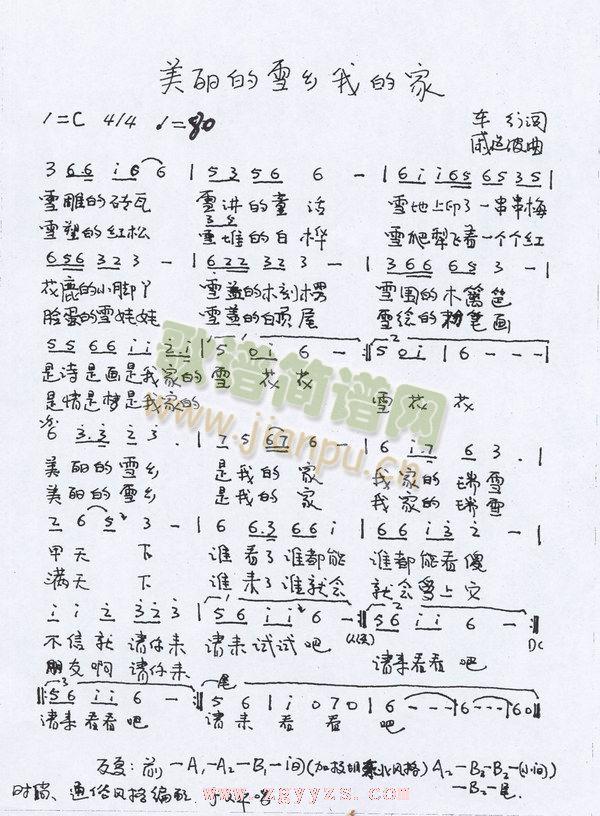 美丽的雪乡我的家
1=C 4/4 ♩=80
车行词
戚建波曲
3 6 6 i 6 6 | 5 3 5 6 6 - | 6 i i 6 5 6 5 3 5 |
雪雕的砖瓦 雪讲的童话 雪地上印了一串串梅
3 5
雪塑的红松 雪堆的白桦 雪爬犁飞着一个个红
6 5 6 3 2 3 - | 6 2 2 3 2 3 - | 3 6 6 6 5 3 - |
花鹿的小脚丫 雪盖的木刻楞 雪围的木篱笆
脸蛋的雪娃娃 雪盖的白顶屋 雪绘的粉笔画
5 5 6 6 i i 2 i | 5 0 i 6 - :‖ 5 0 i | 6 - - - |
是诗是画是我家的 雪 花 花
是情是梦是我家的 雪 花 花
6 3. 3 2 3 . | 7 5 6 7 6 - | 6 i. 7 6 3 . |
美丽的雪乡 是我的 家 我家的 瑞雪
美丽的雪乡 是我的 家 我家的 瑞雪
2 6 5 3 - | 6 6. 3 6 6 i | 6 6 i 3 2 - |
甲天 下 谁看了谁都能 谁都能看傻
满天 下 谁来了谁就会 就会爱上它
i i 2 3 2 2 3 | 5 6 i i 2 6 - :‖ 5 6 i i 6 - :‖
DC
不信就 请你来 请来试试吧
朋友啊 请你来 请来看看 吧
‖: 5 6 i i 6 - :‖ 5 6 | i i 0 7 0 | 6 - - - | 6 - - - | 6 0 ‖
尾
请来看看吧 请来 看 看 吧
反复: 前 - A1 - A2 - B1 - 间 A2 - B2 - B2 - (小间)
- B2 - 尾
时尚、通俗风格编配
歌谱简谱网
www.jianpu.cn
www.zgyyzs.com